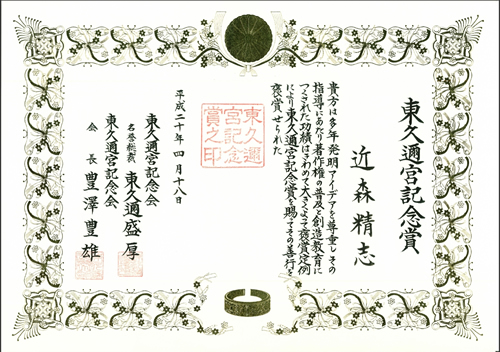 東久邇宮記念賞
近森精志
貴方は多年発明アイデアを尊重しその
指導にあたり著作権の普及と創造教育に
つくされた功績はきわめて大きいよって褒賞定例
により東久邇宮記念賞を賜ってその善行を
褒賞せられた
東久邇
宮記念
賞之印
平成二十年四月十八日
東久邇宮記念会
名誉総裁 東久邇盛厚
東久邇宮記念会
会長 豊澤豊雄